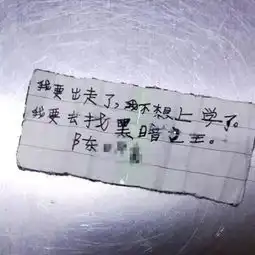 我要出走了，我不想上学了。
我要去找黑暗之王。
陈东